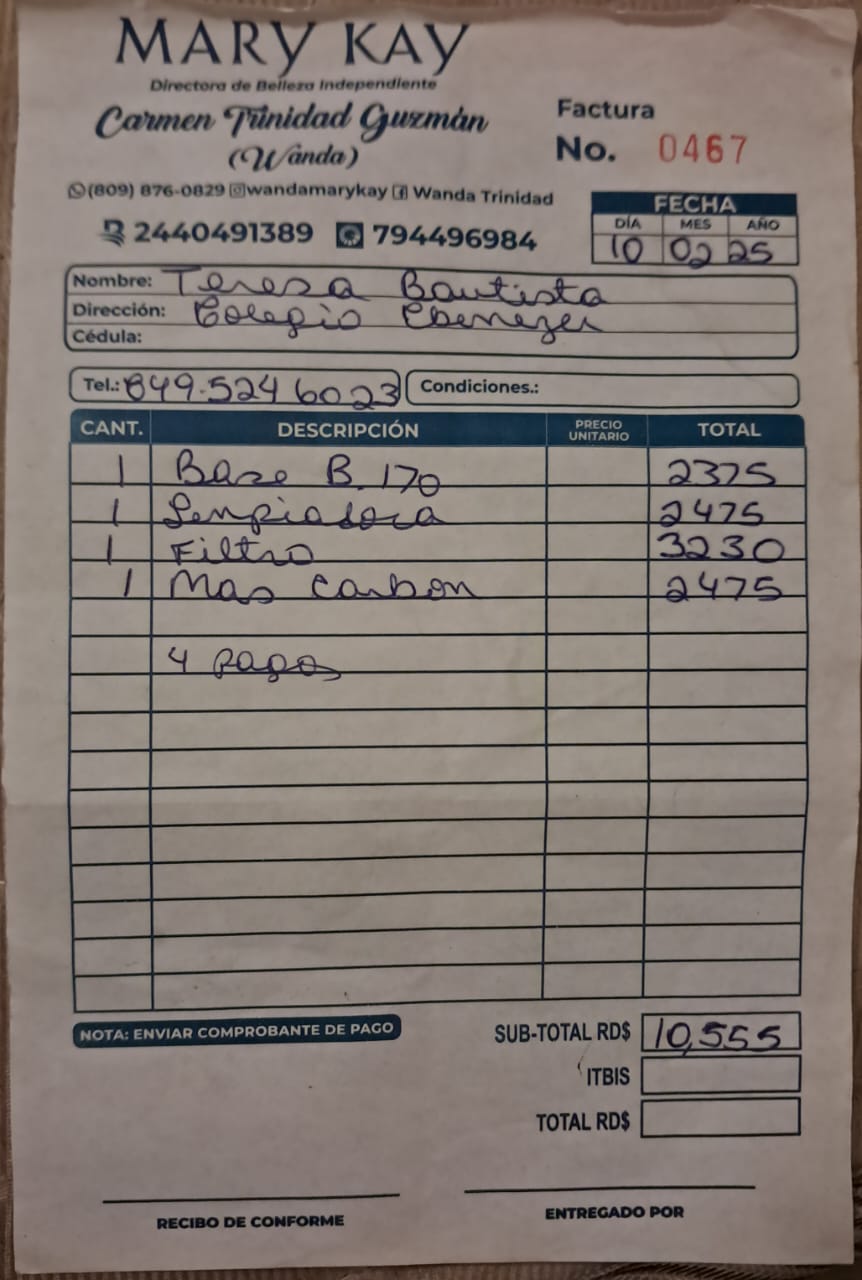 MARY KAY
Directora de Belleza Independiente
Carmen Trinidad Guzmán
(Wanda)
Factura
No. 0467
(809) 876-0829 wandamarykay Wanda Trinidad
2440491389 794496984
FECHA
DÍA MES AÑO
10 02 25
Nombre: Teresa Bautista
Dirección: Colegio Ebenezer
Cédula:
Tel.: 849.524 6023 Condiciones.:
CANT. DESCRIPCIÓN PRECIO UNITARIO TOTAL
1 Base B. 170 2375
1 Lempiadora 2475
1 Filtro 3230
1 Mas Carbon 2475
4 Pagos
NOTA: ENVIAR COMPROBANTE DE PAGO
SUB-TOTAL RD$ 10,555
ITBIS
TOTAL RD$
RECIBO DE CONFORME
ENTREGADO POR